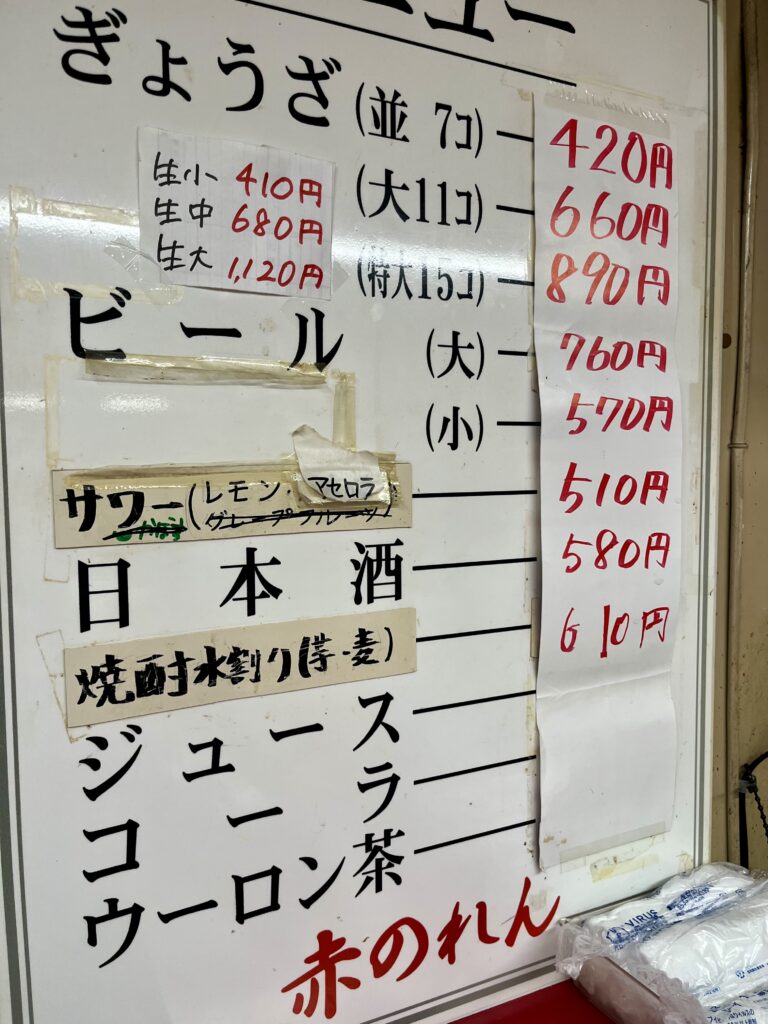 ニュー
ぎょうざ (並 7コ) 420円
(大11コ) 660円
(特大15コ) 890円
生小 410円
生中 680円
生大 1,120円
ビール (大) 760円
(小) 570円
サワー(レモン・アセロラ 510円
グレープフルーツ)
日本酒 580円
焼酎水割り(芋・麦) 610円
ジュース
コーラ
ウーロン茶
赤のれん
VIRUS